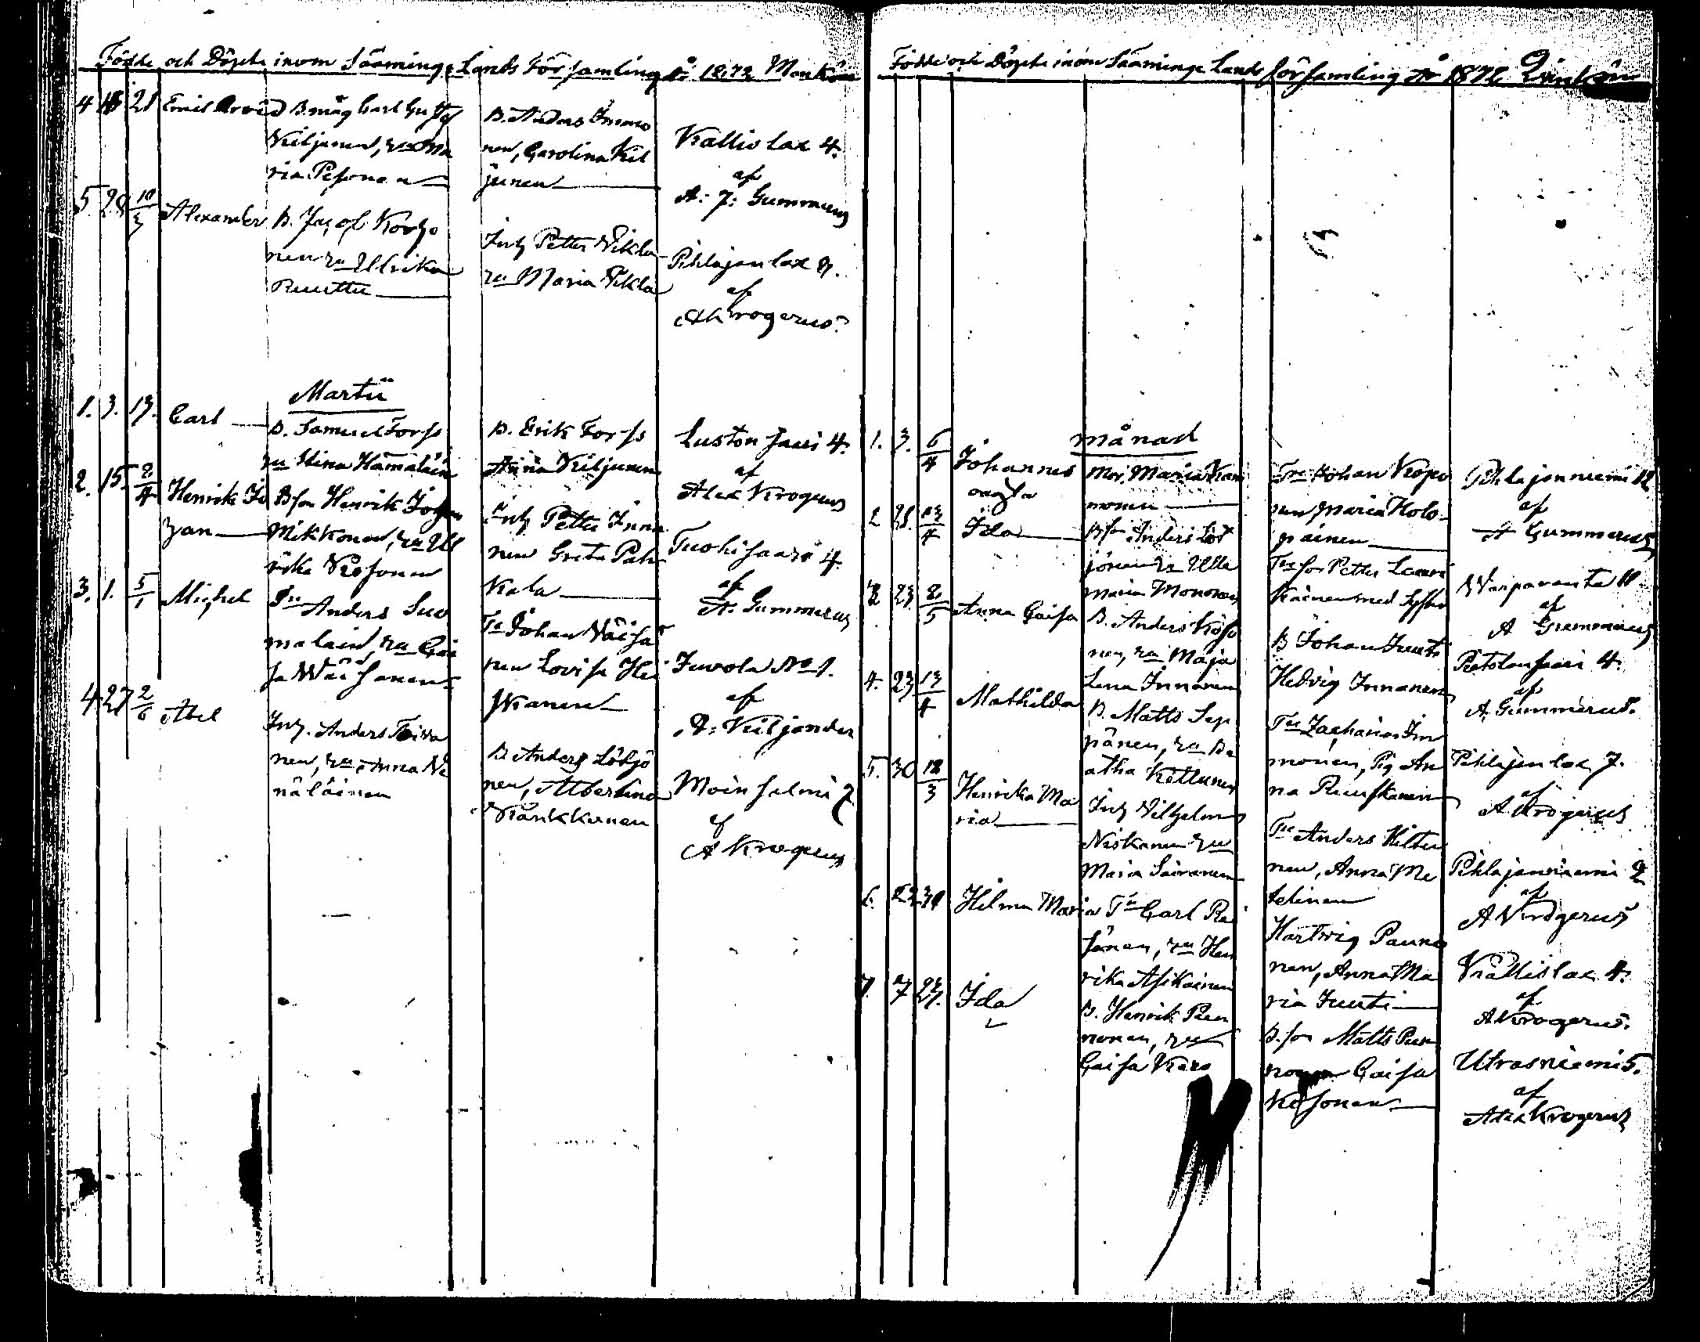 Födde och Döpte inom Sääminge Lands Församling år 1872 Mankön
4 21 Emil Arvid B. måg Carl Gustaf
Kiljunen, Ma
ria Pesonen
B. Anders Immo
nen, Carolina Kil
junen
Kallislax 4.
af
A: J: Gummerus
5. 28 10/3 Alexander B. Jacob Korho
nen Ulrika
Ruuttu
Petter Nikla
Maria Nikla
Pihlajanlax 7.
af
A Krogerus
Martii
1. 3. 17. Carl
B. Samuel Forss
Stina Hämäläin
B. Erik Forss
Anna Kiljunen
Luston saari 4.
af
Alex Krogerus
2. 15. 2/4 Henrik Jo
han
Bson Henrik Johan
Mikkonen, Ull
rika Kosonen
Inh Petter Inna
nen Greta Pah
kala
Tuohisaari 4.
af
A. Gummerus
3. 1. 5/1 Michel
Anders Suo
malain, Cai
sa Wäisänen
Johan Wäisä
nen Lovisa Hei
kkanen
Juvola No 1.
af
A: Kiljander
4. 27 2/6 Abel
Inh. Anders Toiva
nen, Anna Ne
näläinen
B. Anders Löhjö
nen, Albertina
Känkkunen
Moinsalmi 7
af
A Krogerus
Födde och Döpte inom Sääminge Lands församling år 1872 Qvinkön
månad
1. 3. 6/4 Johannes
oägta
Mor, Maria Kam
monen
Johan Kopo
nen Maria Holo-
päinen
Pihlajanniemi 12
af
A Gummerus
2 28 13/4 Ida
Bson Anders Löt
jönen Ulla
Maria Mononen
Petter Lauri
kainen med Syster
Warparanta 11.
af
A Gummerus
3 23 2/5 Anna Caisa
B. Anders Koso
nen, Maja
Lena Innanen
B Johan Juuti
Hedvig Innanen
Pietolansaari 4.
af
A. Gummerus.
4. 23 13/4 Mathilda
B. Matts Sep
pänen, Be
atha Kettunen
Zacharias Im
monen, An
na Ruuskanen
Pihlajanlax 7.
af
A Krogerus
5. 30 12/3 Henrika Ma
ria
Inh Wilhelm
Niskanen
Maria Sairanen
Anders Hiltu
nen, Anna Me
telinen
Pihlajaniemi 2
af
A Krogerus
6. 31 Hilma Maria Carl Rei
jonen, Hen
rika Asikainen
Hartwig Pauno
nen, Anna Ma
ria Juuti
Kallislax 4.
af
A Krogerus.
7. 7 27. Ida
B. Henrik Pun
nonen,
Caisa Karo
B. son Matts Pun
nonen Caisa
Kosonen
Utrasniemi 5.
af
Alex Krogerus